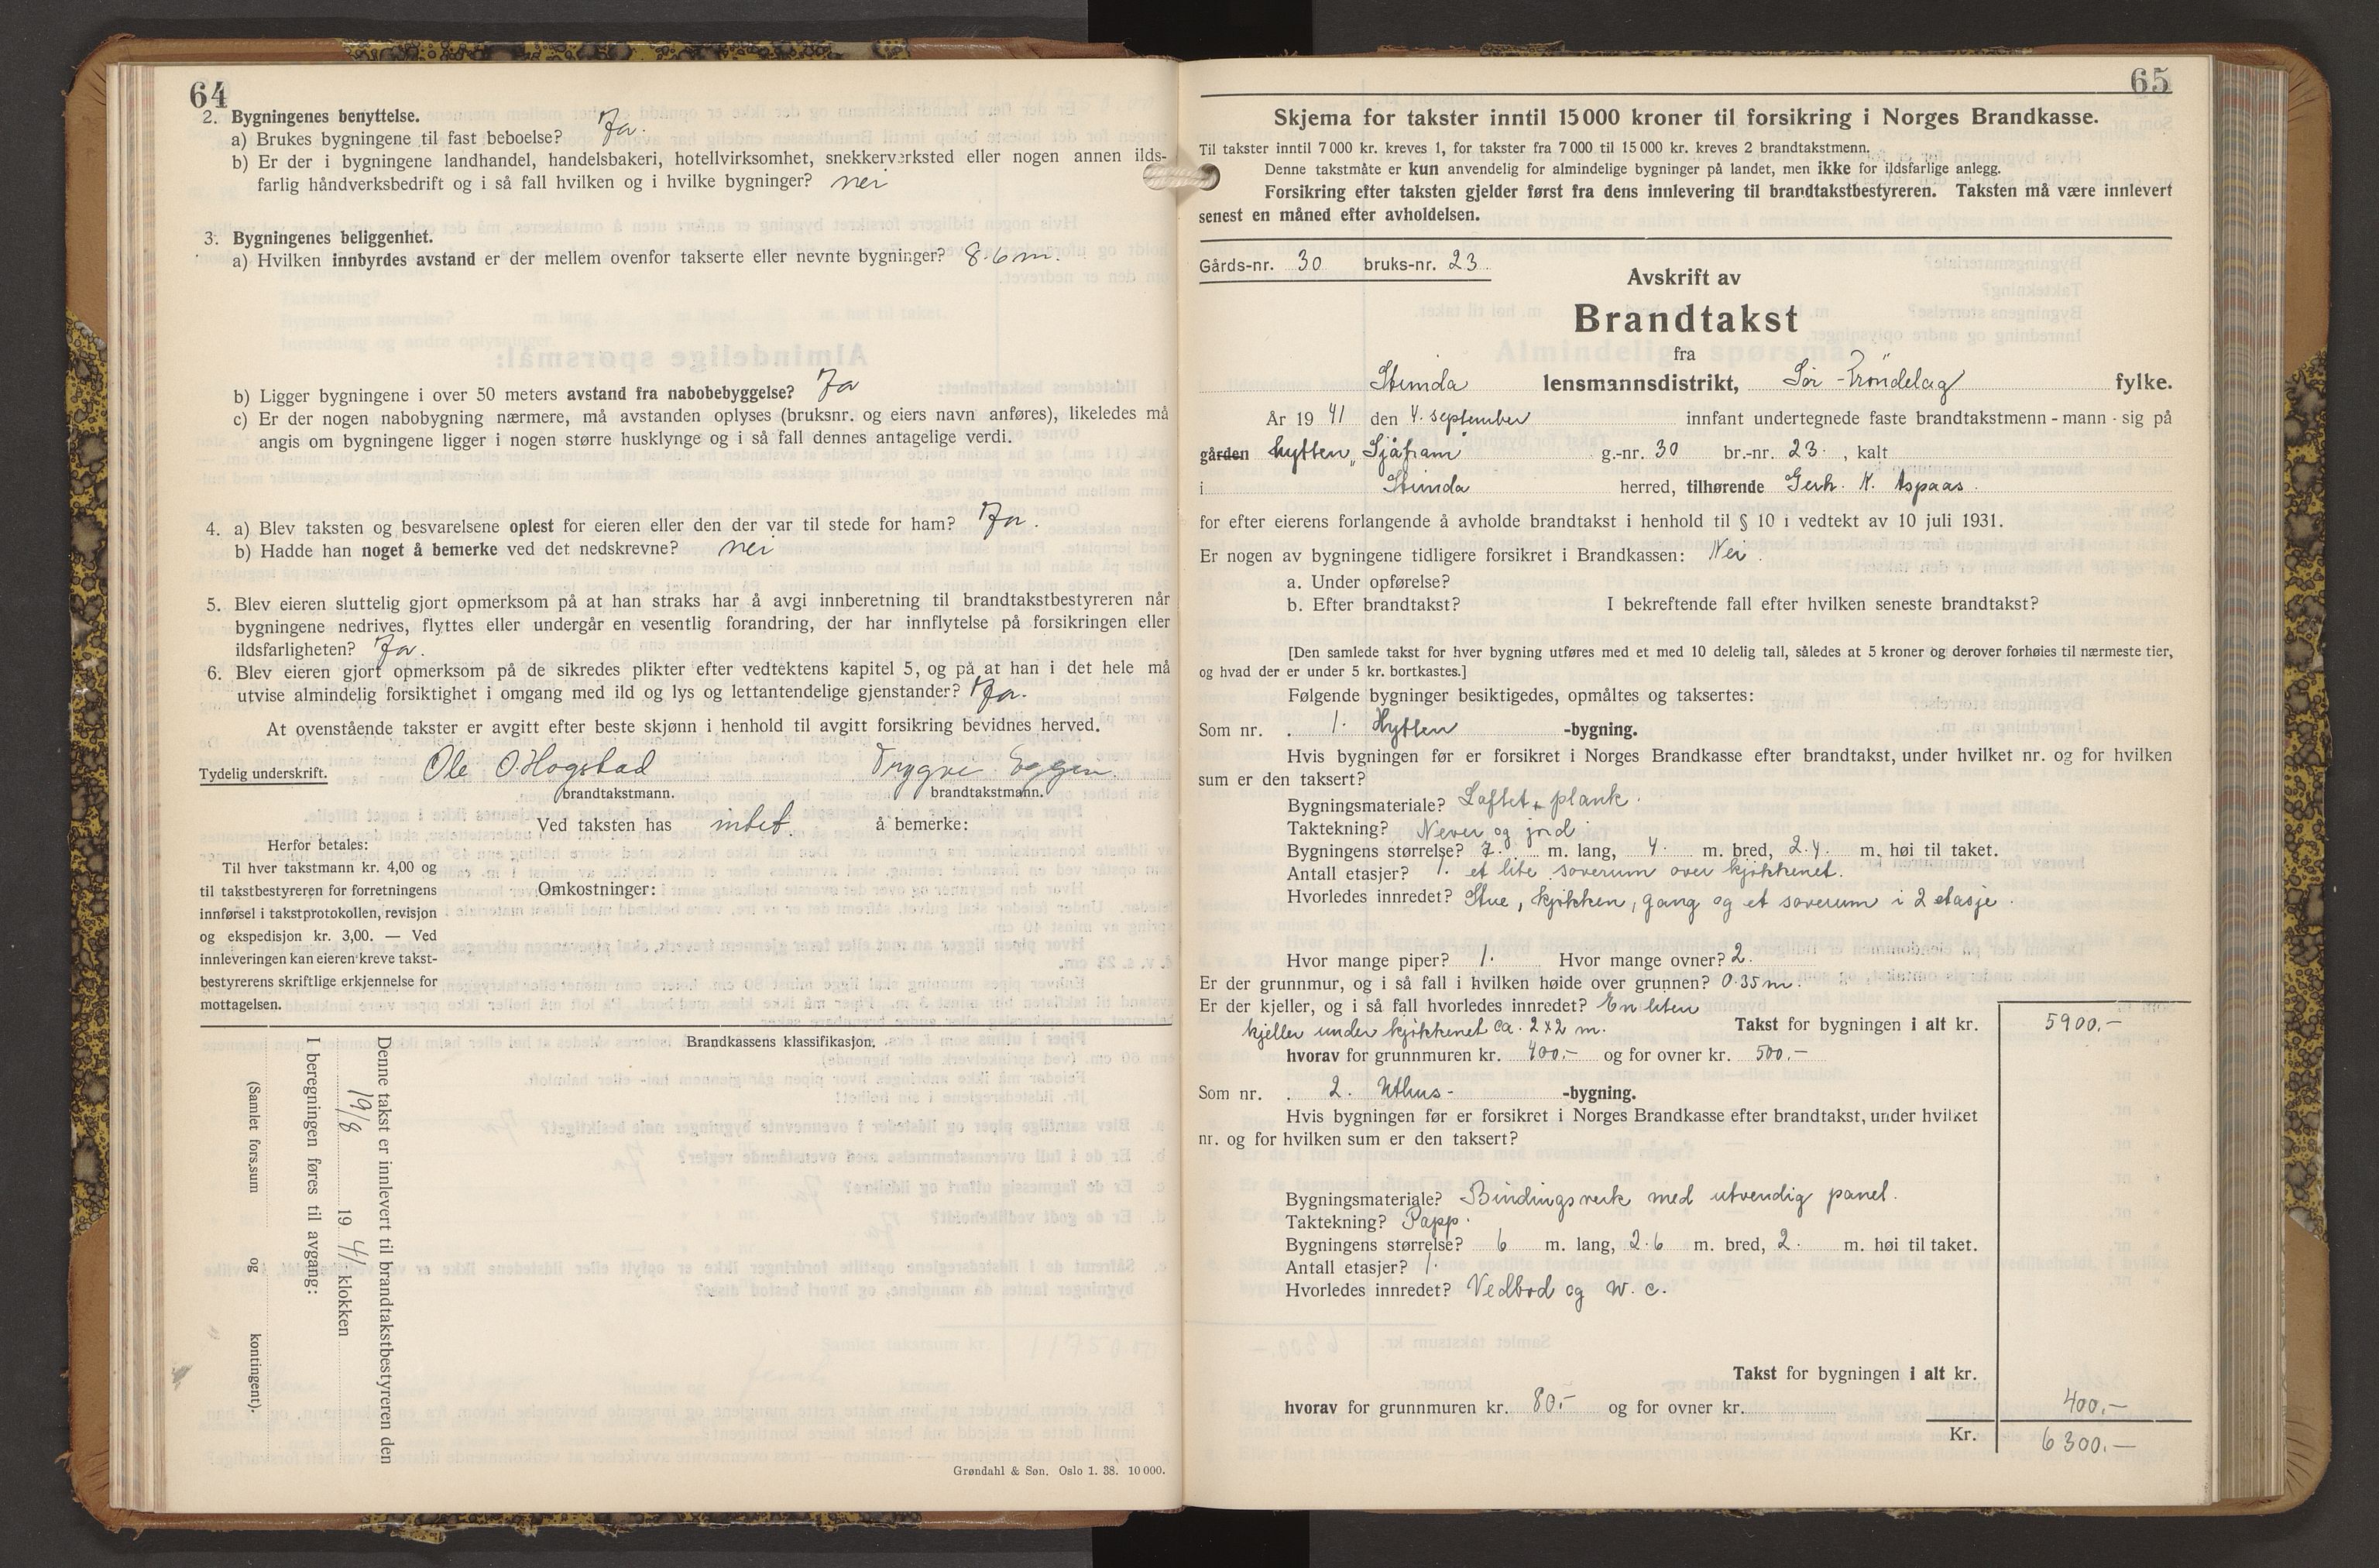 64
2. Bygningenes benyttelse.
a) Brukes bygningene til fast beboelse? Ja.
b) Er der i bygningene landhandel, handelsbakeri, hotellvirksomhet, snekkerverksted eller nogen annen ilds-
farlig håndverksbedrift og i så fall hvilken og i hvilke bygninger? nei
3. Bygningenes beliggenhet.
a) Hvilken innbyrdes avstand er der mellem ovenfor takserte eller nevnte bygninger? 8.6 m.
b) Ligger bygningene i over 50 meters avstand fra nabobebyggelse? Ja
c) Er der nogen nabobygning nærmere, må avstanden oplyses (bruksnr. og eiers navn anføres), likeledes må
angis om bygningene ligger i nogen større husklynge og i så fall dennes antagelige verdi.
4. a) Blev taksten og besvarelsene oplest for eieren eller den der var til stede for ham? Ja.
b) Hadde han noget å bemerke ved det nedskrevne? nei
5. Blev eieren sluttelig gjort opmerksom på at han straks har å avgi innberetning til brandtakstbestyreren når
bygningene nedrives, flyttes eller undergår en vesentlig forandring, der har innflytelse på forsikringen eller
ildsfarligheten? Ja.
6. Blev eieren gjort opmerksom på de sikredes plikter efter vedtektens kapitel 5, og på at han i det hele må
utvise almindelig forsiktighet i omgang med ild og lys og lettantendelige gjenstander? Ja.
At ovenstående takster er avgitt efter beste skjønn i henhold til avgitt forsikring bevidnes herved.
Tydelig underskrift. Ole O. Hogstad Trygve Eggen.
brandtakstmann. brandtakstmann.
Ved taksten has intet. å bemerke:
Herfor betales:
Til hver takstmann kr. 4,00 og
til takstbestyreren for forretningens
innførsel i takstprotokollen, revisjon
og ekspedisjon kr. 3,00. — Ved
innleveringen kan eieren kreve takst-
bestyrerens skriftlige erkjennelse for
mottagelsen.
Omkostninger:
Brandkassens klassifikasjon.
Denne takst er innlevert til brandtakstbestyreren den
19/8 19 41 klokken
I beregningen føres til avgang:
(Samlet fors.sum og kontingent).
Grøndahl & Søn. Oslo 1. 38. 10 000.
65
Skjema for takster inntil 15 000 kroner til forsikring i Norges Brandkasse.
Til takster inntil 7 000 kr. kreves 1, for takster fra 7 000 til 15 000 kr. kreves 2 brandtakstmenn.
Denne takstmåte er kun anvendelig for almindelige bygninger på landet, men ikke for ildsfarlige anlegg.
Forsikring efter taksten gjelder først fra dens innlevering til brandtakstbestyreren. Taksten må være innlevert
senest en måned efter avholdelsen.
Gårds-nr. 30 bruks-nr. 23
Avskrift av
Brandtakst
fra
Strinda lensmannsdistrikt, Sör-Tröndelag fylke.
År 19 41 den 4. september innfant undertegnede faste brandtakstmenn - mann - sig på
gården hytten „Sjåfram" g.-nr. 30 br.-nr. 23. , kalt
i Strinda herred, tilhørende Gerh. N. Aspaas.
for efter eierens forlangende å avholde brandtakst i henhold til § 10 i vedtekt av 10 juli 1931.
Er nogen av bygningene tidligere forsikret i Brandkassen: Nei.
a. Under opførelse?
b. Efter brandtakst? I bekreftende fall efter hvilken seneste brandtakst?
[Den samlede takst for hver bygning utføres med et med 10 delelig tall, således at 5 kroner og derover forhøies til nærmeste tier,
og hvad der er under 5 kr. bortkastes.]
Følgende bygninger besiktigedes, opmåltes og taksertes:
Som nr. 1. Hytten -bygning.
Hvis bygningen før er forsikret i Norges Brandkasse efter brandtakst, under hvilket nr. og for hvilken
sum er den taksert?
Bygningsmateriale? Laftet plank.
Taktekning? Never og jord
Bygningens størrelse? 7. m. lang, 4. m. bred, 2.4. m. høi til taket.
Antall etasjer? 1. et lite soverum over kjökkenet.
Hvorledes innredet? Stue, kjökken, gang og et soverum i 2 etasje.
Hvor mange piper? 1. Hvor mange ovner? 2.
Er der grunnmur, og i så fall i hvilken høide over grunnen? 0.35 m.
Er der kjeller, og i så fall hvorledes innredet? En liten
kjeller under kjökkenet ca. 2x2 m. Takst for bygningen i alt kr. 5900.-
hvorav for grunnmuren kr. 400.- og for ovner kr. 500.-
Som nr. 2. Uthus- -bygning.
Hvis bygningen før er forsikret i Norges Brandkasse efter brandtakst, under hvilket
nr. og for hvilken sum er den taksert?
Bygningsmateriale? Bindingsverk med utvendig panel.
Taktekning? Papp.
Bygningens størrelse? 6 m. lang, 2.6 m. bred, 2. m. høi til taket.
Antall etasjer? 1.
Hvorledes innredet? Vedbod og W. c.
Takst for bygningen i alt kr.
hvorav for grunnmuren kr. 80.- og for ovner kr. 400.-
Kr. 6300.-